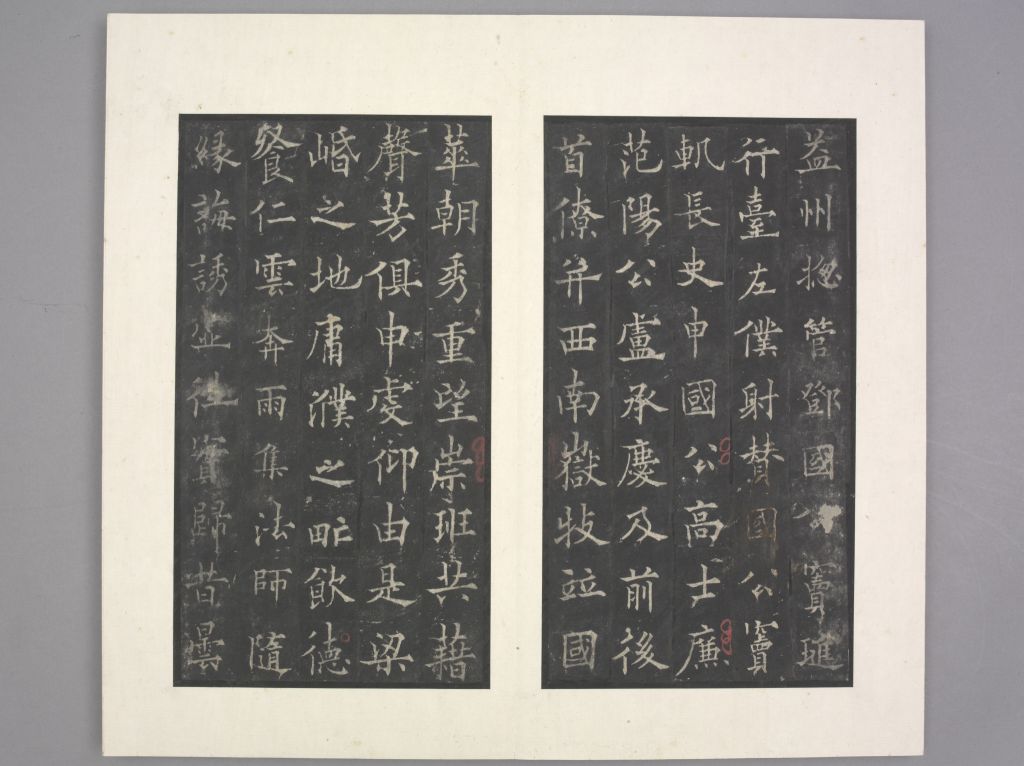 益州揔管鄧國公竇璡
行臺左僕射賛國公竇
軌長史申國公高士廉
范陽公盧承慶及前後
首僚并西南嶽牧竝國
華朝秀重望崇班共藉
聲芳俱申虔仰由是梁
㟭之地庸濮之甿飲德
飡仁雲奔雨集法師隨
緣誨誘虛往實歸昔曇